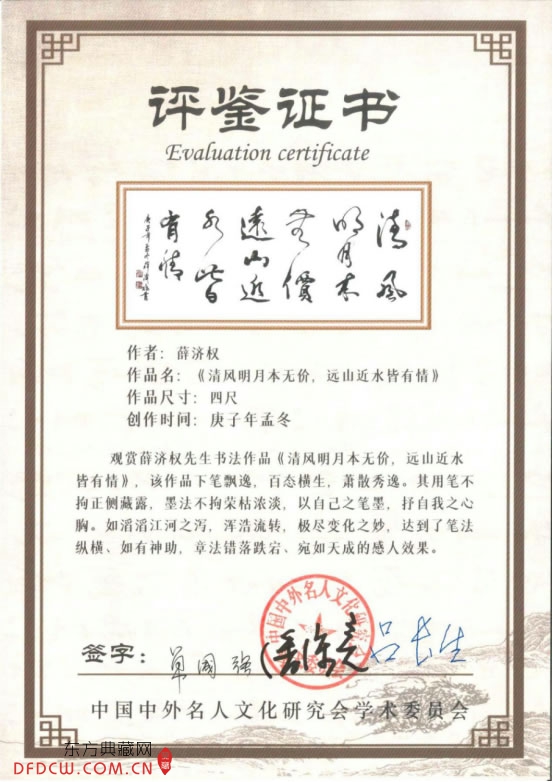 评鉴证书
Evaluation certificate
清风
明月本
无價
遠山近
水皆
有情
作者：薛济权
作品名：《清风明月本无价，远山近水皆有情》
作品尺寸：四尺
创作时间：庚子年孟冬
观赏薛济权先生书法作品《清风明月本无价，远山近水
皆有情》，该作品下笔飘逸，百态横生，萧散秀逸。其用笔不
拘正侧藏露，墨法不拘荣枯浓淡，以自己之笔墨，抒自我之心
胸。如滔滔江河之泻，浑浩流转，极尽变化之妙，达到了笔法
纵横、如有神助，章法错落跌宕、宛如天成的感人效果。
中国中外名人文化研究会
签字：
单國强
吕长生
中国中外名人文化研究会学术委员会
东方典藏网
DFDCW.COM.CN